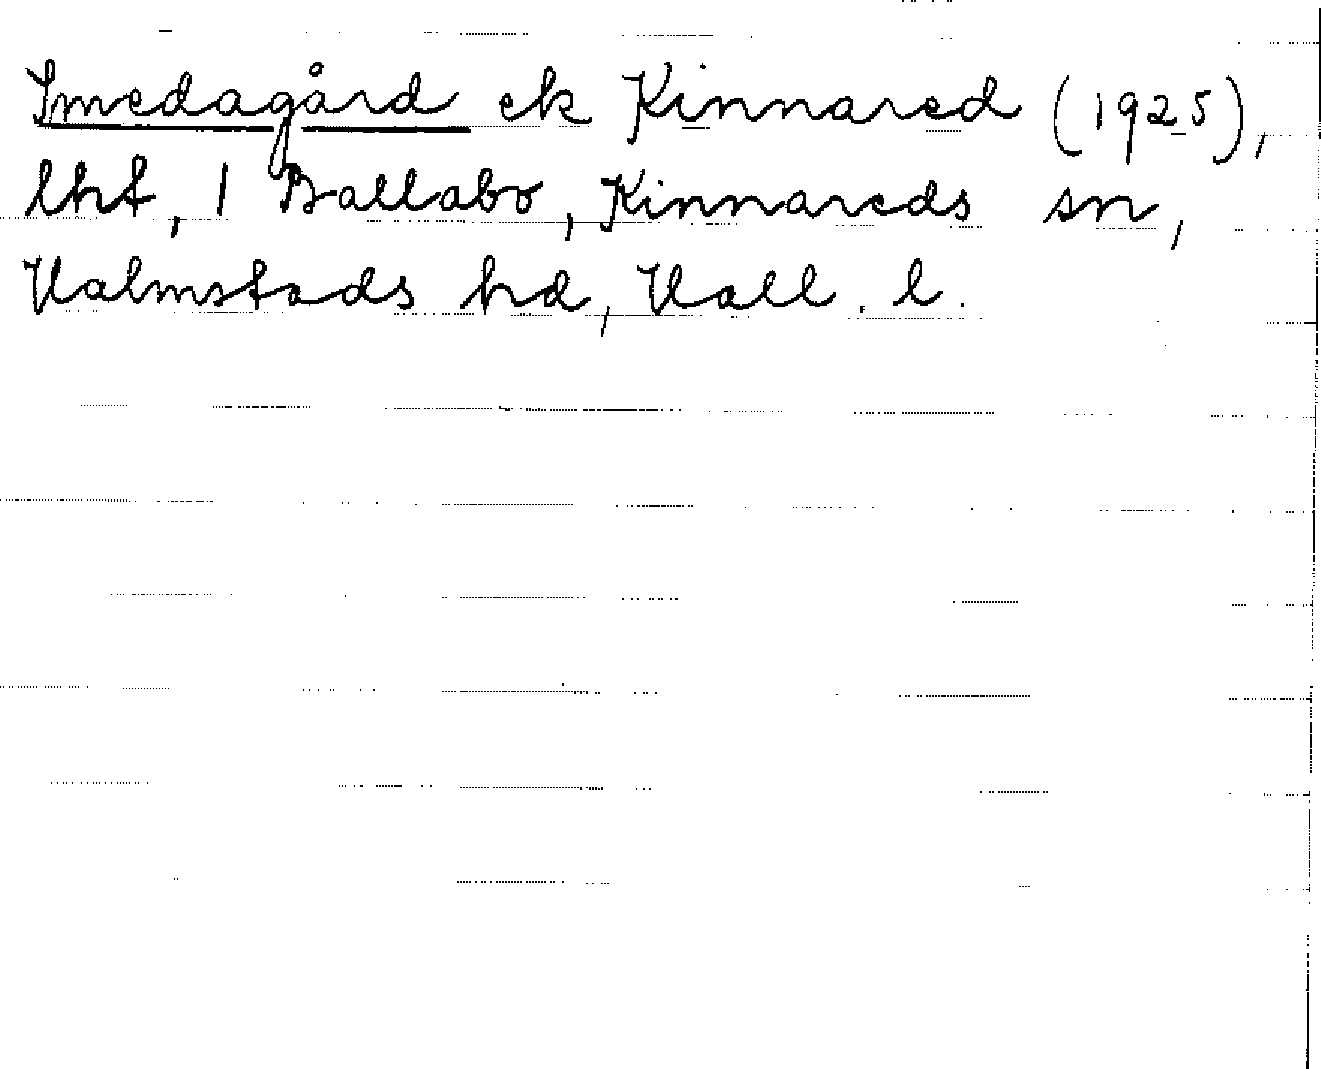 Smedagård ek Kinnared (1925),
lht, 1 Ballabo, Kinnareds sn,
Halmstads hd, Hall. l.